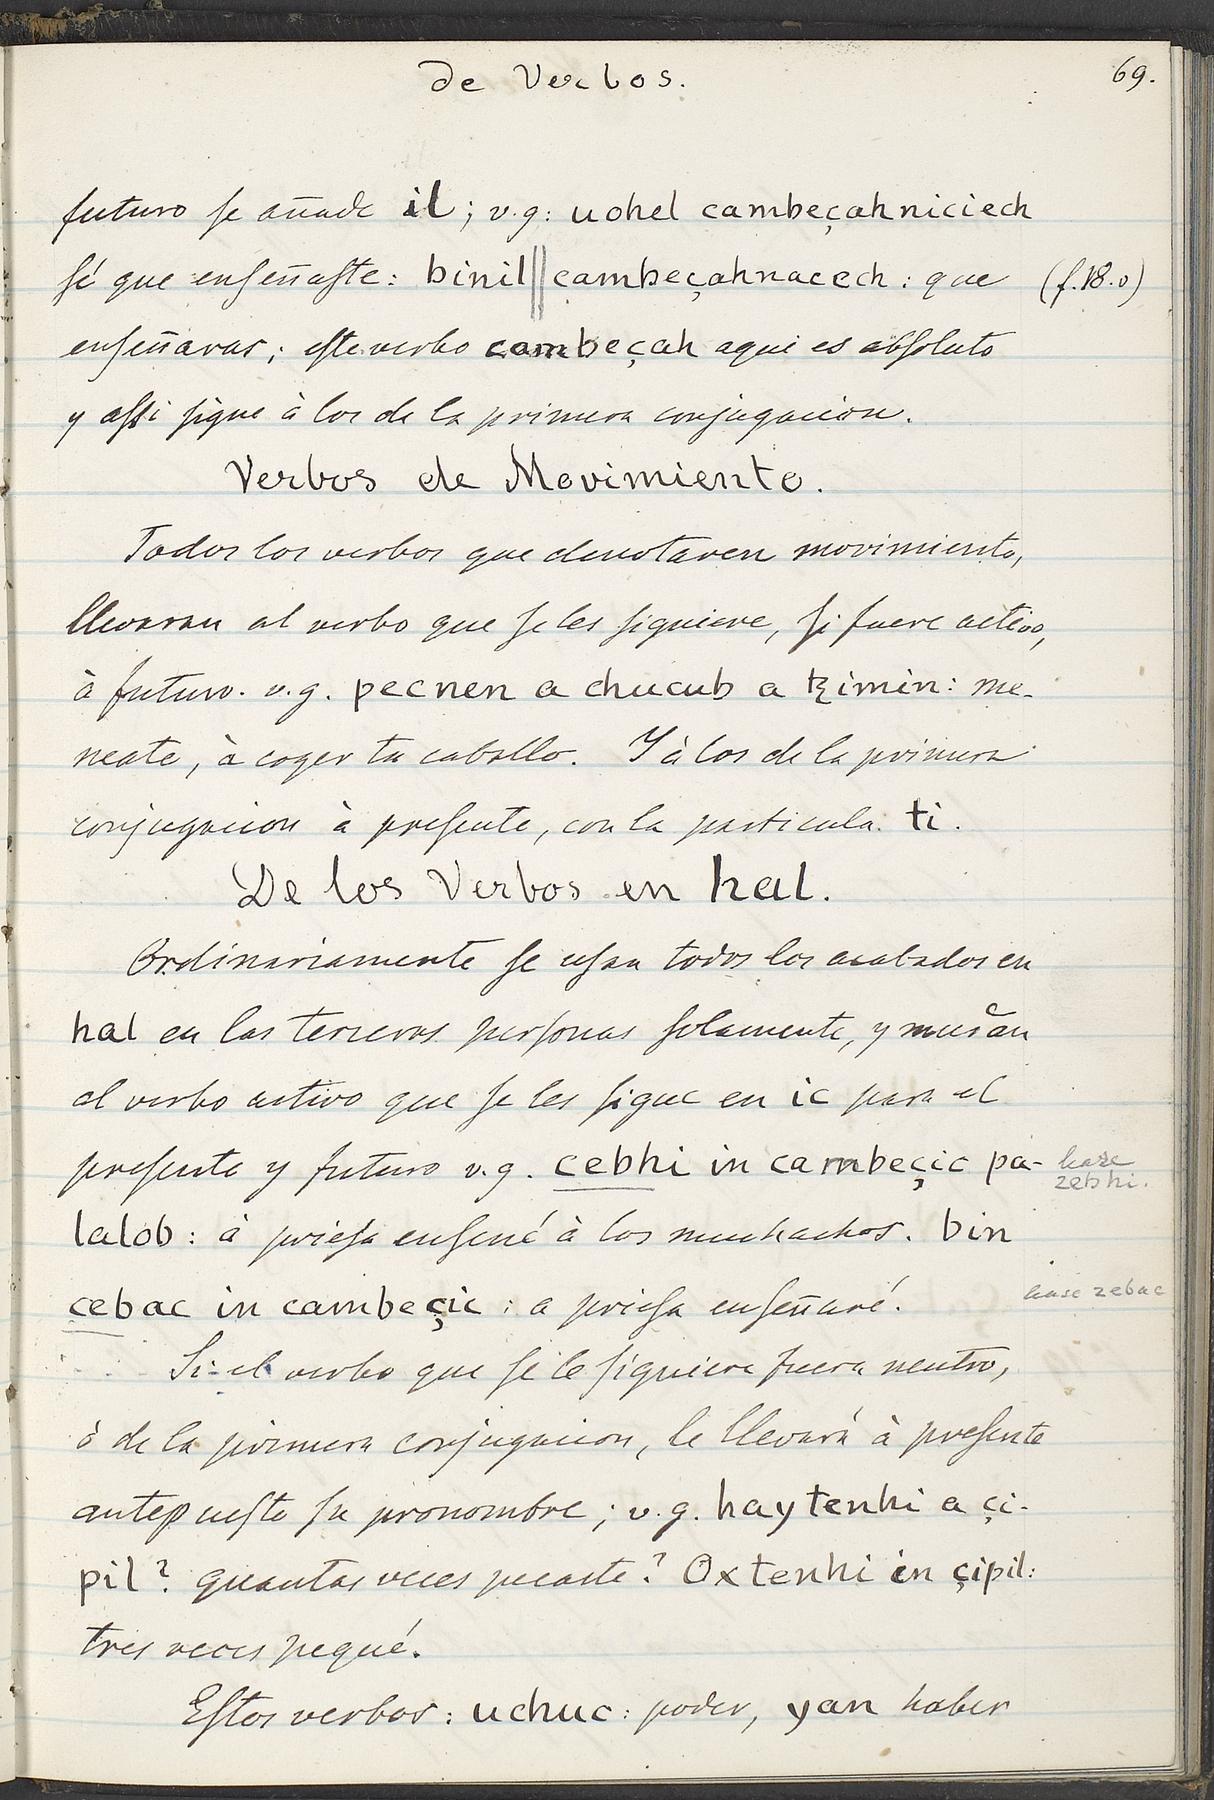 de Verbos.
69.
futuro se añade il; v.g: uohel cambeçahniciech
sé que enseñaste: binil || cambeçahnacech: que (f.18.v)
enseñaras; este verbo cambeçah aqui es absoluto
y assi sigue à los de la primera conjugacion.
Verbos de Movimiento.
Todos los verbos que denotaren movimiento,
llevaran al verbo que se les siguiere, si fuere activo,
à futuro. v.g. pecnen a chucub a tzimin: me-
neate, à coger tu caballo. Y à los de la primera
conjugacion à presente, con la particula ti.
De los Verbos en hal.
Ordinariamente se usan todos los acabados en
hal en las terceras personas solamente, y mudan
al verbo activo que se les sigue en ic para el
presente y futuro v.g. cebhi in cambeçic pa-
hase zebhi.
lalob: à priesa enseñé à los muchachos. bin
cebac in cambeçic: a priesa enseñaré.
hase zebac
Si el verbo que se le siguiera fuera neutro,
ò de la primera conjugacion, le llevará à presente
antepuesto su pronombre; v.g. haytenhi a çi-
pil? quantas veces pecaste? Oxtenhi in çipil:
tres veces pequé.
Estos verbos: uchuc: poder, yan haber